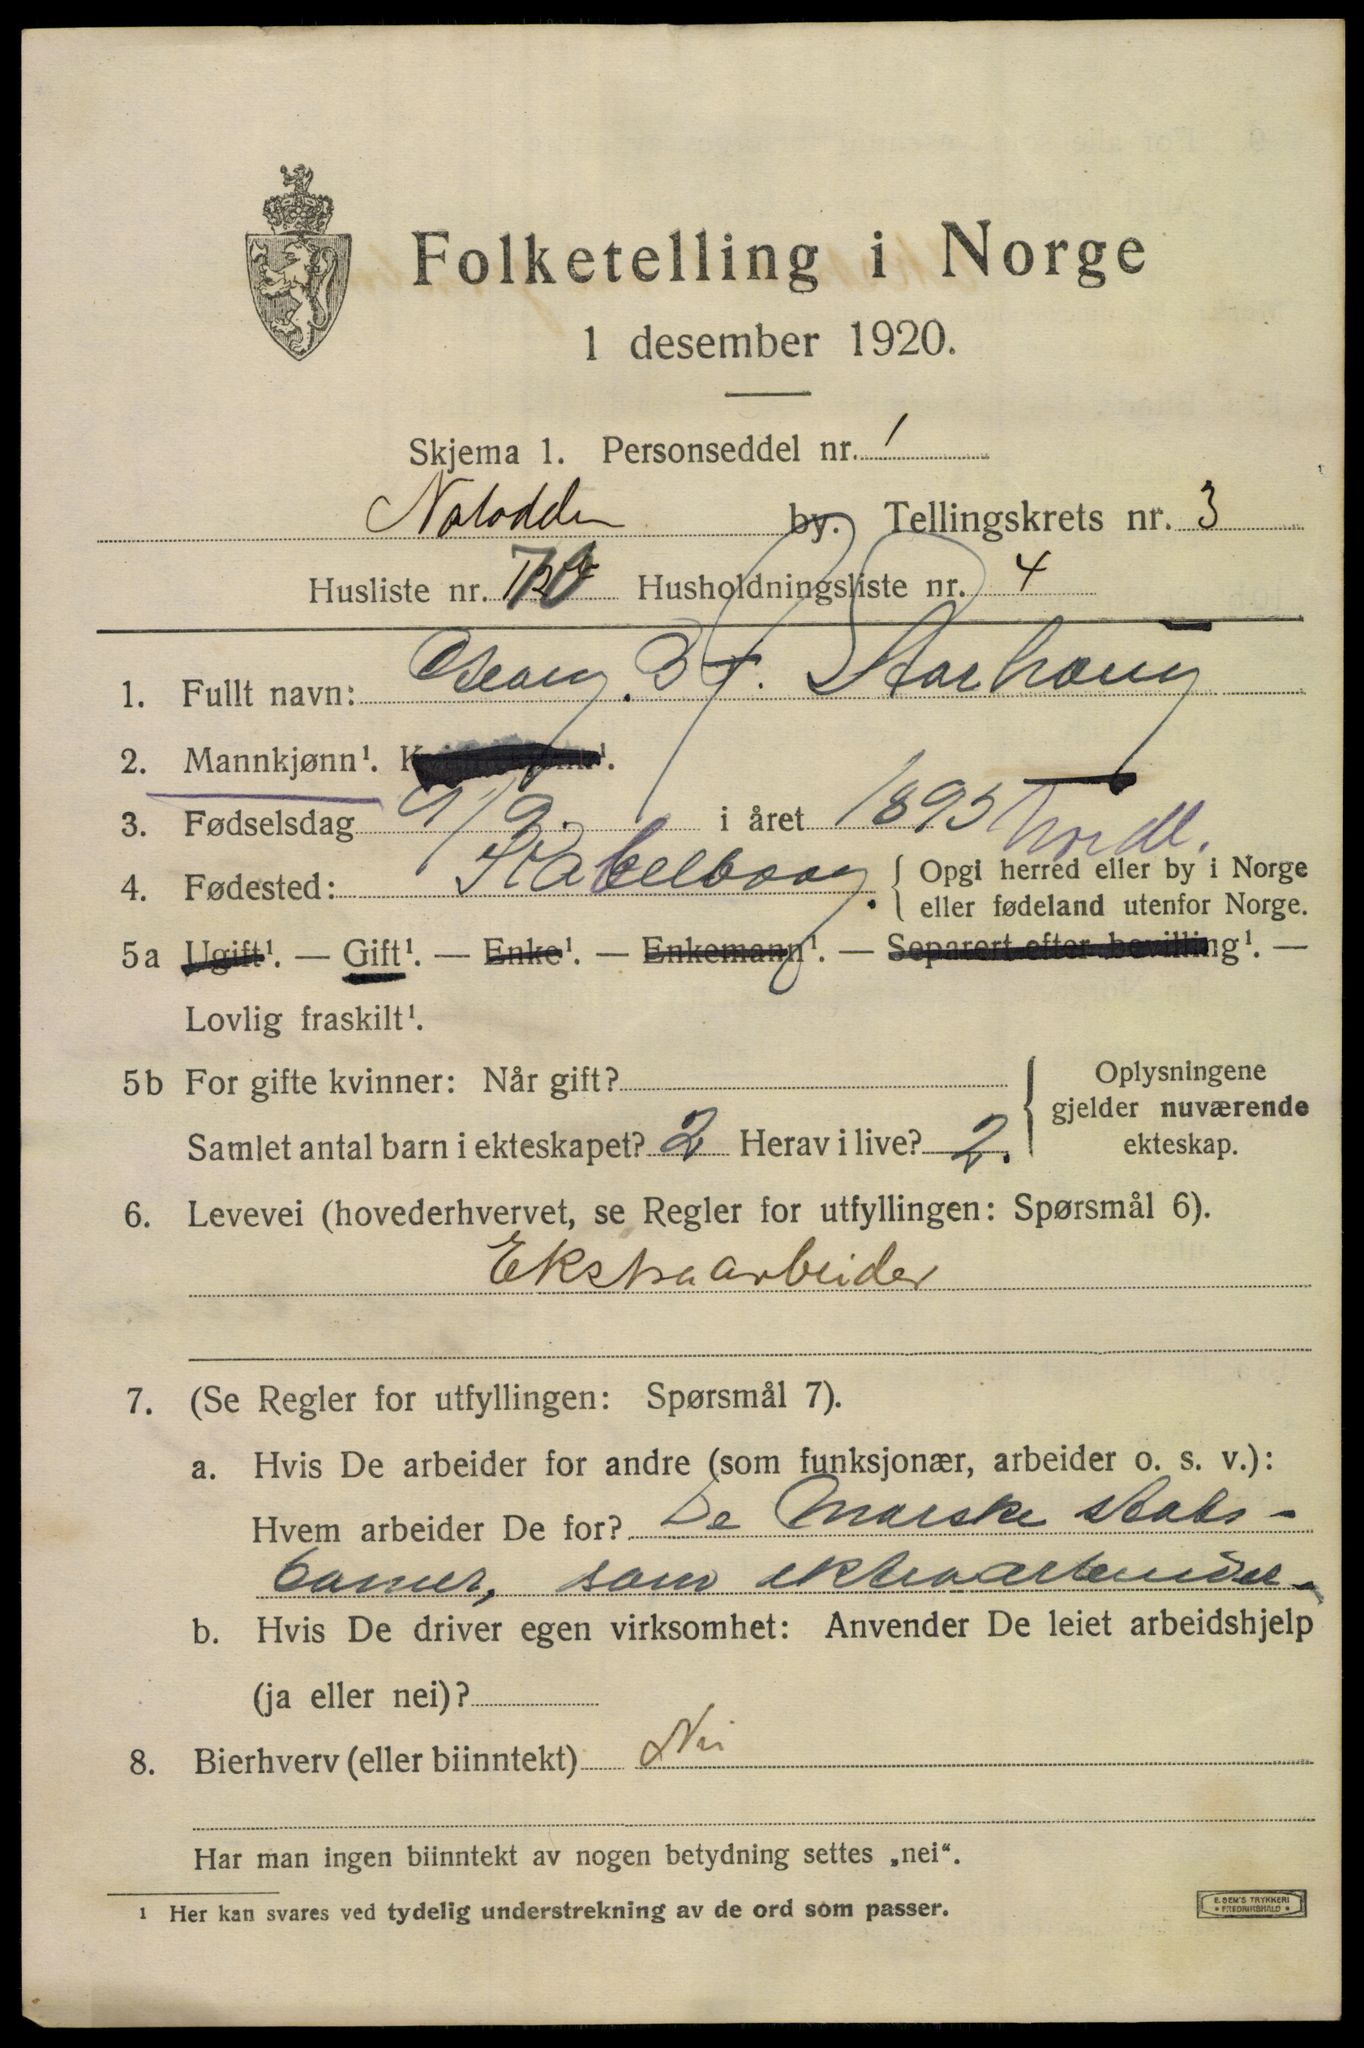 Folketelling i Norge
1 desember 1920.
Skjema 1. Personseddel nr. 1
Notodden by. Tellingskrets nr. 3
Husliste nr. 70 Husholdningsliste nr. 4
1. Fullt navn: Georg. B.
2. Mannkjønn¹. Kvinnekjønn¹.
3. Fødselsdag 9/9. i året 1895
4. Fødested: { Opgi herred eller by i Norge
eller fødeland utenfor Norge.
5a Ugift¹. — Gift¹. — Enke¹. — Enkemann¹. — Separert efter bevilling¹. —
Lovlig fraskilt¹.
5b For gifte kvinner: Når gift? { Oplysningene
gjelder nuværende
Samlet antal barn i ekteskapet? 2 Herav i live? 2. ekteskap.
6. Levevei (hovederhvervet, se Regler for utfyllingen: Spørsmål 6).
Ekstraarbeider
7. (Se Regler for utfyllingen: Spørsmål 7).
a. Hvis De arbeider for andre (som funksjonær, arbeider o. s. v.):
Hvem arbeider De for? De Norske stats-
baner, som ekstraarbeider.
b. Hvis De driver egen virksomhet: Anvender De leiet arbeidshjelp
(ja eller nei)?
8. Bierhverv (eller biinntekt) Nei
Har man ingen biinntekt av nogen betydning settes „nei“.
¹ Her kan svares ved tydelig understrekning av de ord som passer.
E. SEM'S TRYKKERI
• FREDRIKSHALD •